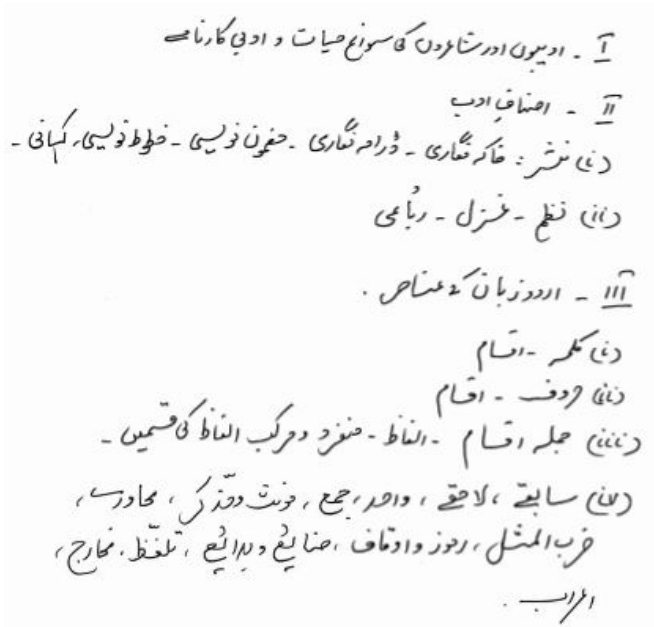 I ۔ ادیبوں اور شاعروں کی سوانح حیات و ادبی کارنامے
II ۔ اصنافِ ادب
(i) نثر : خاکہ نگاری ۔ ڈرامہ نگاری ۔ مضمون نویسی ۔ خطوط نویسی، کہانی ۔
(ii) نظم ۔ غزل ۔ رباعی
III ۔ اردو زبان کے عناصر ۔
(i) کلمہ ۔ اقسام
(ii) حروف ۔ اقسام
(iii) جملہ اقسام ۔ الفاظ ۔ منفرد و مرکب الفاظ کی قسمیں ۔
(iv) سابقے ، لاحقے ، واحد، جمع ، مونث و مذکر ، محاورے ،
ضرب المثل ، رموز و اوقاف ، صنائع و بدائع ، تلفّظ ، مخارج ،
اعراب ۔